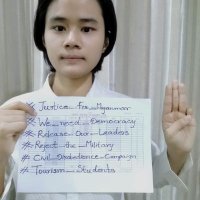 # Justice_For_Myanmar
# We_need_Democracy
# Release_Our_Leaders
# Reject_the_Military
# Civil_Disobedience_Campaign
# Tourism_Students